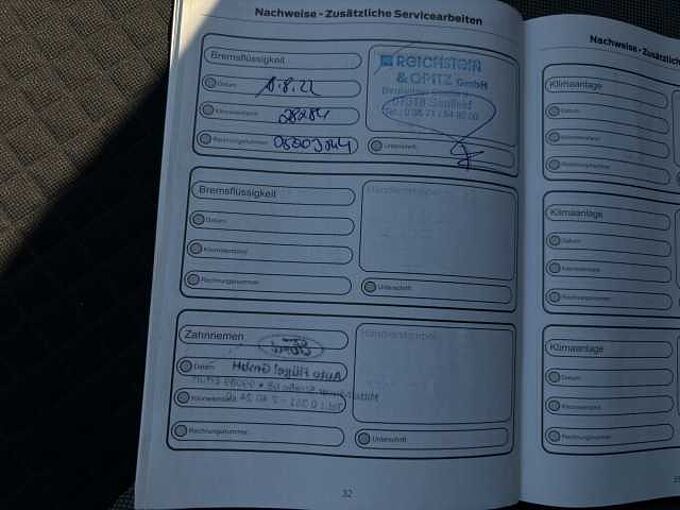 Nachweise - Zusätzliche Servicearbeiten
Bremsflüssigkeit
Datum 8.8.22
Kilometerstand 28284
Rechnungsnummer
REICHSTEIN
& OPITZ GmbH
07318 Saalfeld
Unterschrift
Bremsflüssigkeit
Datum
Kilometerstand
Rechnungsnummer
Händlerstempel
Unterschrift
Zahnriemen
Datum
Kilometerstand
Rechnungsnummer
Händlerstempel
Unterschrift
Ford
Auto Flügel GmbH
32
Nachweise - Zusätzlich
Klimaanlage
Datum
Kilometerstand
Rechnungsnummer
Klimaanlage
Datum
Kilometerstand
Rechnungsnummer
Klimaanlage
Datum
Kilometerstand
Rechnungsnummer